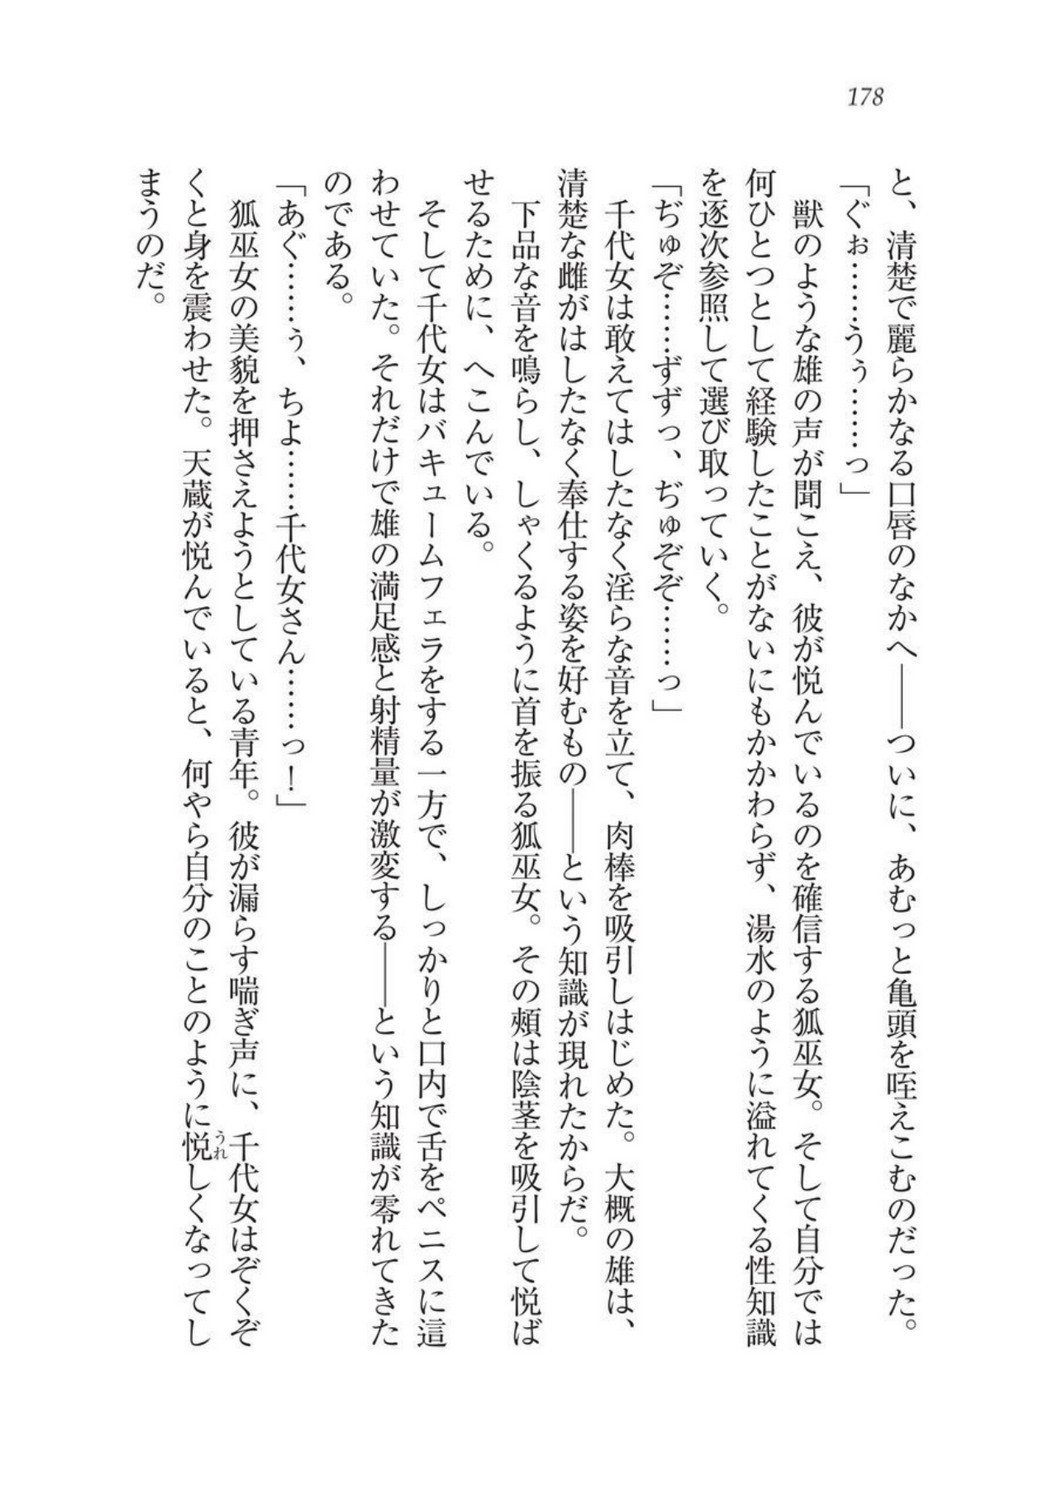 178
と、清楚で麗らかなる口唇のなかへ――ついに、あむっと亀頭を咥えこむのだった。
「ぐぉ……うぅ……っ」
獣のような雄の声が聞こえ、彼が悦んでいるのを確信する狐巫女。そして自分では
何ひとつとして経験したことがないにもかかわらず、湯水のように溢れてくる性知識
を逐次参照して選び取っていく。
「ぢゅぞ……ずずっ、ぢゅぞぞ……っ」
千代女は敢えてはしたなく淫らな音を立て、肉棒を吸引しはじめた。大概の雄は、
清楚な雌がはしたなく奉仕する姿を好むもの――という知識が現れたからだ。
下品な音を鳴らし、しゃくるように首を振る狐巫女。その頰は陰茎を吸引して悦ば
せるために、へこんでいる。
そして千代女はバキュームフェラをする一方で、しっかりと口内で舌をペニスに這
わせていた。それだけで雄の満足感と射精量が激変する――という知識が零れてきた
のである。
「あぐ……ぅ、ちよ……千代女さん……っ！」
狐巫女の美貌を押さえようとしている青年。彼が漏らす喘ぎ声に、千代女はぞくぞ
くと身を震わせた。天蔵が悦んでいると、何やら自分のことのように悦しくなってし
うれ
まうのだ。